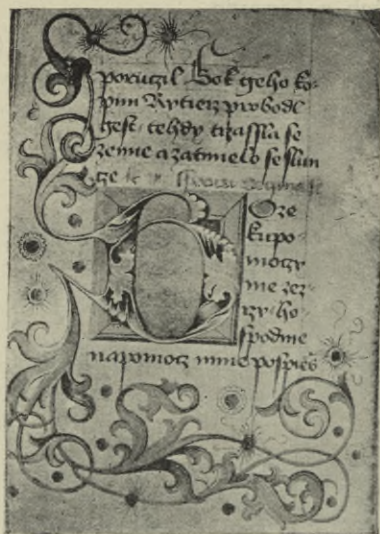 poruczil Bok geho ko-
pim Rytierz probodl
gest tehdy trzassla se
zemie a zatmielo se slun
cze
Oze
ku po
moczy
me zez
rzy ho-
spodine
na pomocz mnie pospies